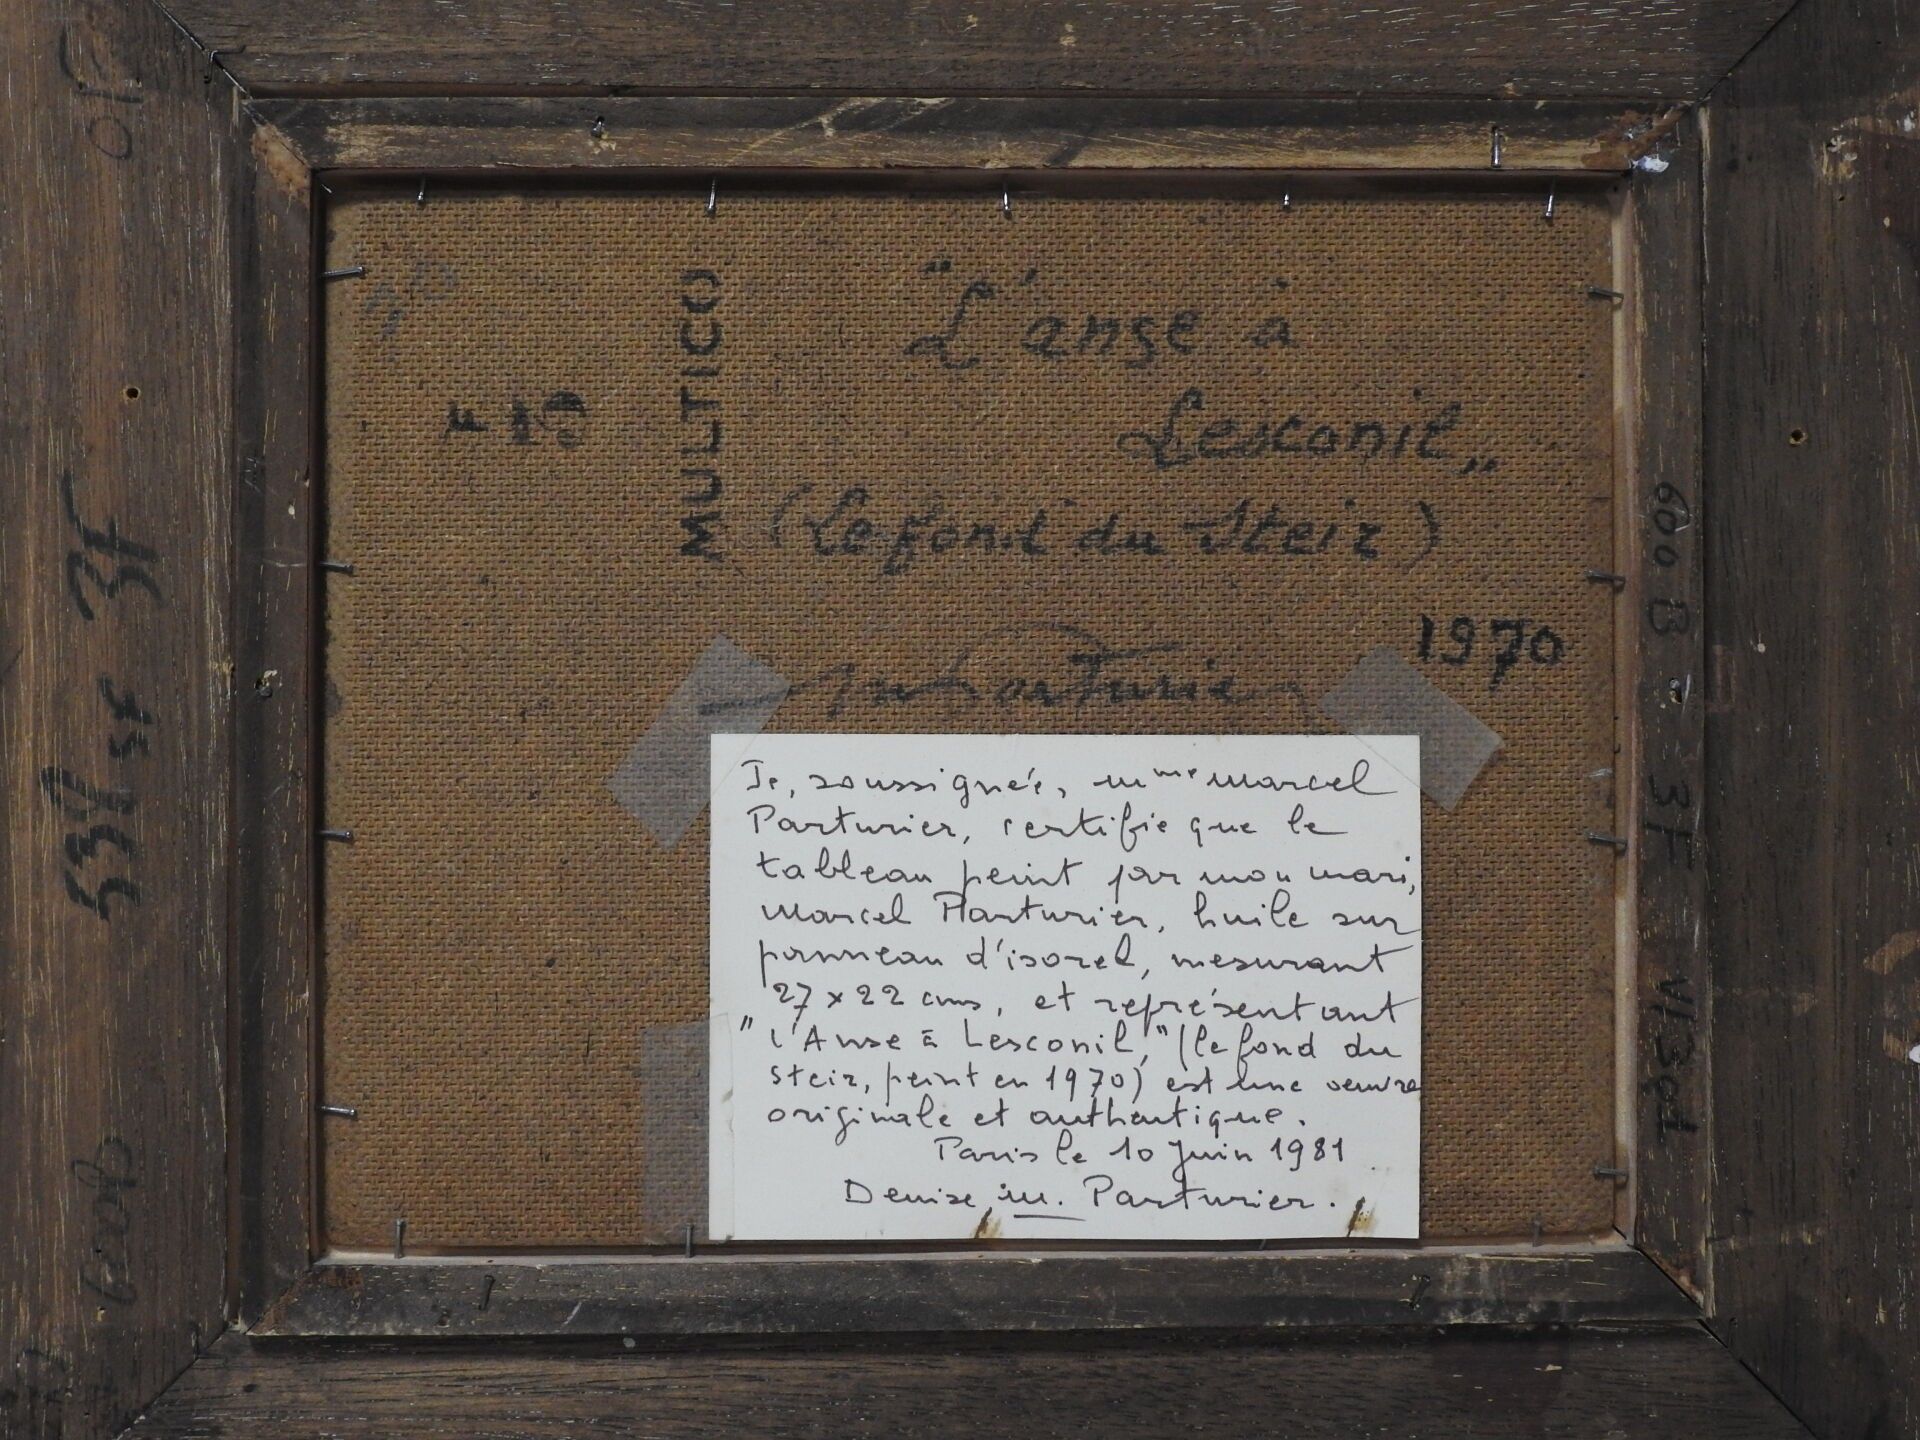 "L'anse à
Lesconil"
(Le fond du Steir)
1970
MParturier
MULTICO
Je, soussignée, Mme Marcel
Parturier, certifie que le
tableau peint par mon mari,
Marcel Parturier, huile sur
panneau d'isorel, mesurant
27 x 22 cms, et représentant
"l'Anse à Lesconil," (le fond du
steir, peint en 1970) est une oeuvre
originale et authentique.
Paris le 10 Juin 1981
Denise M. Parturier.
3F
600 B
3F